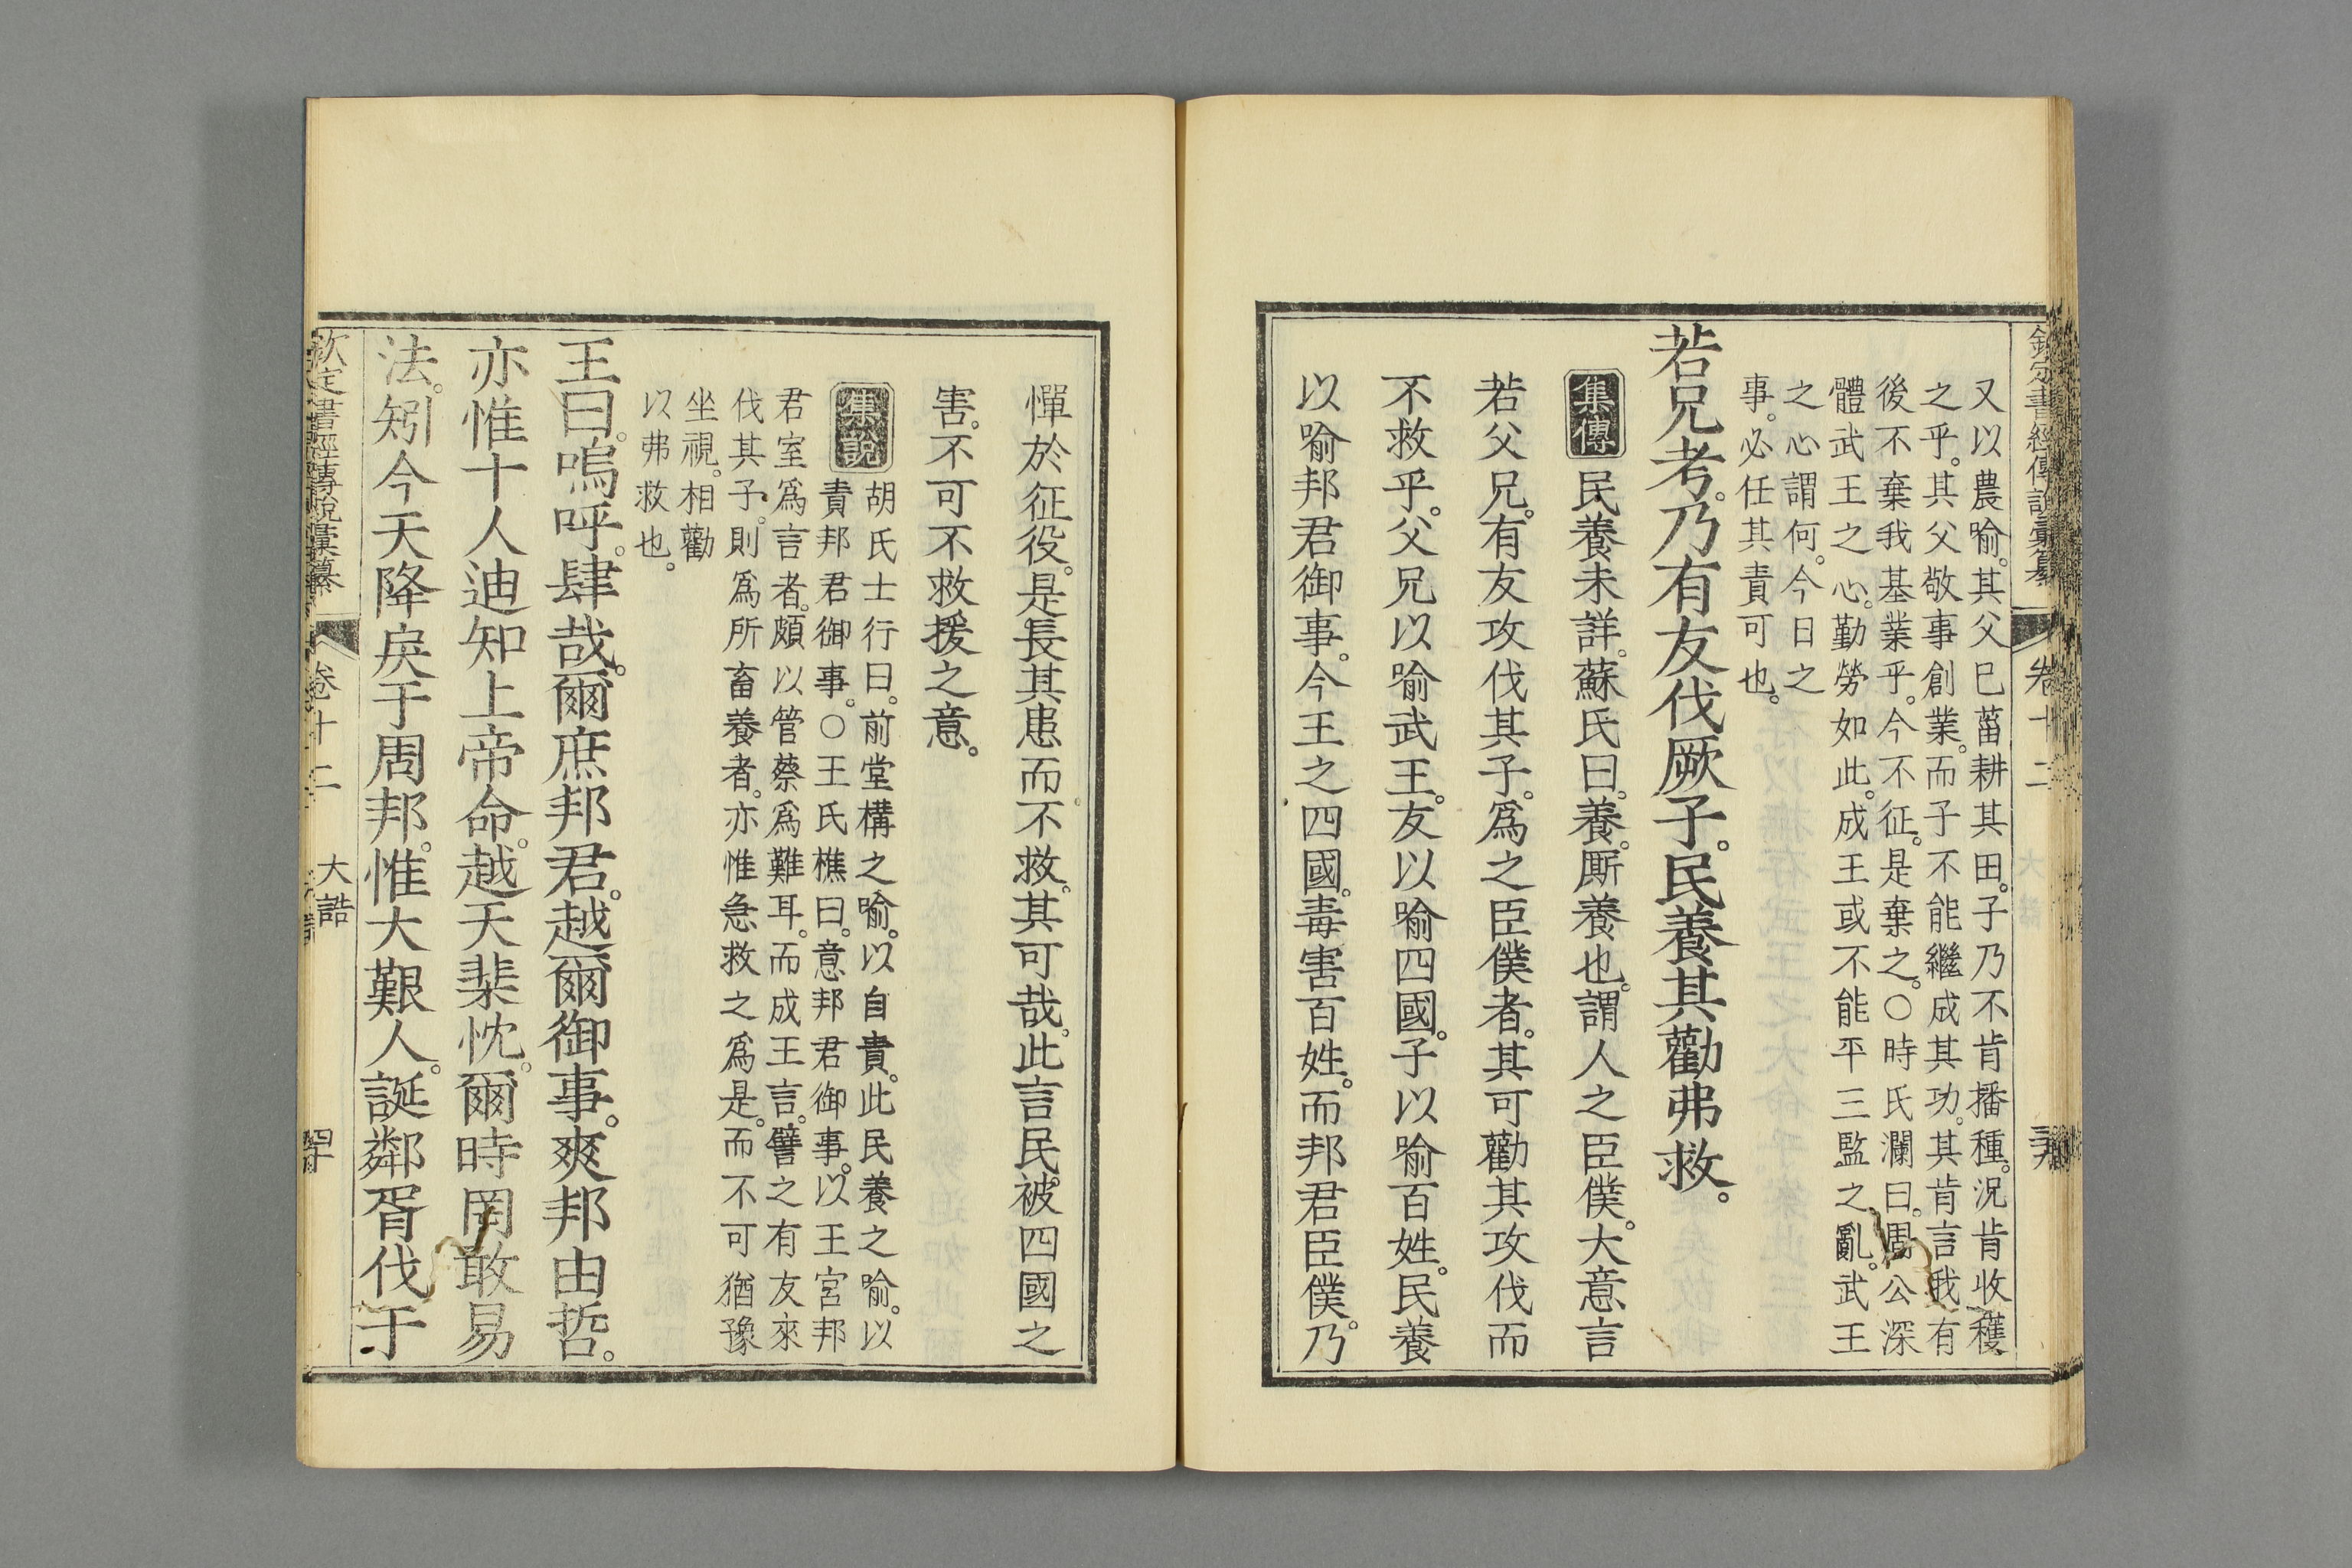 欽定書經傳說彙纂 卷十二
又以農喻。其父已菑耕其田。子乃不肯播種。況肯收穫
之乎。其父敬事創業。而子不能繼成其功。其肯言我有
後不棄我基業乎。今不征。是棄之。○時氏瀾曰。周公深
體武王之心。勤勞如此。成王或不能平三監之亂。武王
之心謂何。今日之
事。必任其責可也。
若兄考。乃有友伐厥子。民養其勸弗救。
集傳 民養未詳。蘇氏曰。養。厮養也。謂人之臣僕。大意言
若父兄。有友攻伐其子。爲之臣僕者。其可勸其攻伐而
不救乎。父兄以喻武王。友以喻四國。子以喻百姓。民養
以喻邦君御事。今王之四國。毒害百姓。而邦君臣僕。乃
憚於征役。是長其患而不救。其可哉。此言民。被四國之
害。不可不救援之意。
集說 胡氏士行曰。前堂構之喻。以自責。此民養之喻。以
責邦君御事。○王氏樵曰。意邦君御事。以王宮邦
君室爲言者。頗以管蔡爲難耳。而成王言。譬之有友來
伐其子。則爲所畜養者。亦惟急救之爲是。而不可猶豫
坐視。相勸
以弗救也。
王曰。嗚呼。肆哉。爾庶邦君。越爾御事。爽邦由哲。
亦惟十人迪知上帝命。越天棐忱。爾時罔敢易
法。矧今天降戾于周邦。惟大艱人。誕鄰胥伐于
欽定書經傳說彙纂 卷十二 大誥 四十